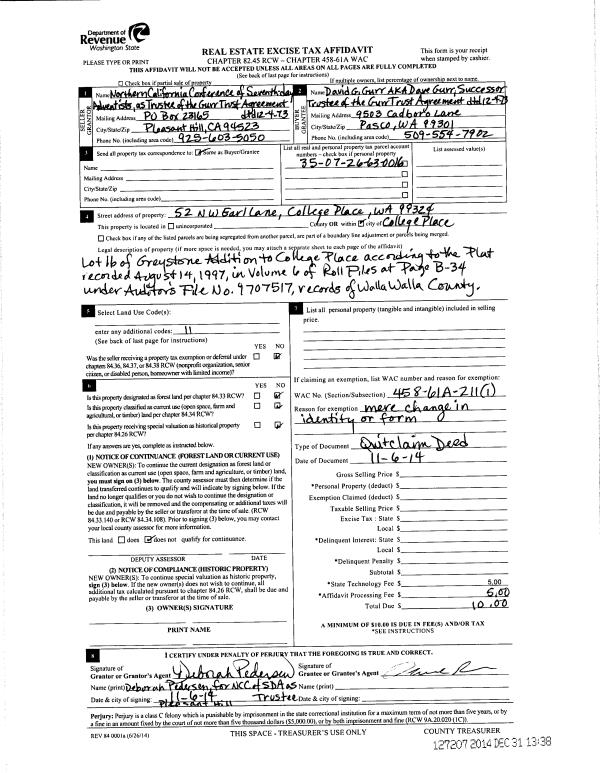 Department of
Revenue
Washington State
REAL ESTATE EXCISE TAX AFFIDAVIT
This form is your receipt
when stamped by cashier.
PLEASE TYPE OR PRINT
CHAPTER 82.45 RCW – CHAPTER 458-61A WAC
THIS AFFIDAVIT WILL NOT BE ACCEPTED UNLESS ALL AREAS ON ALL PAGES ARE FULLY COMPLETED
(See back of last page for instructions)
Check box if partial sale of property
If multiple owners, list percentage of ownership next to name.
1 Name Northern California Conference of Seventh-day
Adventists, as Trustee of the Gurr Trust Agreement dtd 12-4-73
SELLER GRANTOR
Mailing Address PO Box 23165
City/State/Zip Pleasant Hill, CA 94523
Phone No. (including area code) 925-603-5050
2 Name David G. Gurr AKA Dave Gurr, Successor
Trustee of the Gurr Trust Agreement dtd 12-4-73
BUYER GRANTEE
Mailing Address 9503 Cadboro Lane
City/State/Zip Pasco, WA 99301
Phone No. (including area code) 509-554-7902
3 Send all property tax correspondence to: Same as Buyer/Grantee
Name
Mailing Address
City/State/Zip
Phone No. (including area code)
List all real and personal property tax parcel account
numbers – check box if personal property
35-07-26-63-0016
List assessed value(s)
4 Street address of property: 52 NW Earl Lane, College Place, WA 99324
This property is located in unincorporated County OR within city of College Place
Check box if any of the listed parcels are being segregated from another parcel, are part of a boundary line adjustment or parcels being merged.
Legal description of property (if more space is needed, you may attach a separate sheet to each page of the affidavit)
Lot 16 of Greystone Addition to College Place according to the Plat
recorded August 14, 1997, in Volume 6 of Roll Files at Page B-34
under Auditor's File No. 9707517, records of Walla Walla County.
5 Select Land Use Code(s):
enter any additional codes: 11
(See back of last page for instructions)
YES NO
Was the seller receiving a property tax exemption or deferral under
chapters 84.36, 84.37, or 84.38 RCW (nonprofit organization, senior
citizen, or disabled person, homeowner with limited income)?
6 YES NO
Is this property designated as forest land per chapter 84.33 RCW?
Is this property classified as current use (open space, farm and
agricultural, or timber) land per chapter 84.34 RCW?
Is this property receiving special valuation as historical property
per chapter 84.26 RCW?
If any answers are yes, complete as instructed below.
(1) NOTICE OF CONTINUANCE (FOREST LAND OR CURRENT USE)
NEW OWNER(S): To continue the current designation as forest land or
classification as current use (open space, farm and agriculture, or timber) land,
you must sign on (3) below. The county assessor must then determine if the
land transferred continues to qualify and will indicate by signing below. If the
land no longer qualifies or you do not wish to continue the designation or
classification, it will be removed and the compensating or additional taxes will
be due and payable by the seller or transferor at the time of sale. (RCW
84.33.140 or RCW 84.34.108). Prior to signing (3) below, you may contact
your local county assessor for more information.
This land does does not qualify for continuance.
DEPUTY ASSESSOR DATE
(2) NOTICE OF COMPLIANCE (HISTORIC PROPERTY)
NEW OWNER(S): To continue special valuation as historic property,
sign (3) below. If the new owner(s) does not wish to continue, all
additional tax calculated pursuant to chapter 84.26 RCW, shall be due and
payable by the seller or transferor at the time of sale.
(3) OWNER(S) SIGNATURE
PRINT NAME
7 List all personal property (tangible and intangible) included in selling
price.
If claiming an exemption, list WAC number and reason for exemption:
WAC No. (Section/Subsection) 458-61A-211(1)
Reason for exemption mere change in
identity or form
Type of Document Quitclaim Deed
Date of Document 11-6-14
Gross Selling Price $
*Personal Property (deduct) $
Exemption Claimed (deduct) $
Taxable Selling Price $
Excise Tax : State $
Local $
*Delinquent Interest: State $
Local $
*Delinquent Penalty $
Subtotal $
*State Technology Fee $ 5.00
*Affidavit Processing Fee $ 5.00
Total Due $ 10.00
A MINIMUM OF $10.00 IS DUE IN FEE(S) AND/OR TAX
*SEE INSTRUCTIONS
8 I CERTIFY UNDER PENALTY OF PERJURY THAT THE FOREGOING IS TRUE AND CORRECT.
Signature of
Grantor or Grantor's Agent Deborah Pedersen
Name (print) Deborah Pedersen, for NCC of SDA as
Trustee
Date & city of signing: 11-6-14
Pleasant Hill
Signature of
Grantee or Grantee's Agent
Name (print)
Date & city of signing:
Perjury: Perjury is a class C felony which is punishable by imprisonment in the state correctional institution for a maximum term of not more than five years, or by
a fine in an amount fixed by the court of not more than five thousand dollars ($5,000.00), or by both imprisonment and fine (RCW 9A.20.020 (1C)).
REV 84 0001a (6/26/14)
THIS SPACE - TREASURER'S USE ONLY
COUNTY TREASURER
127207 2014 DEC 31 13:38